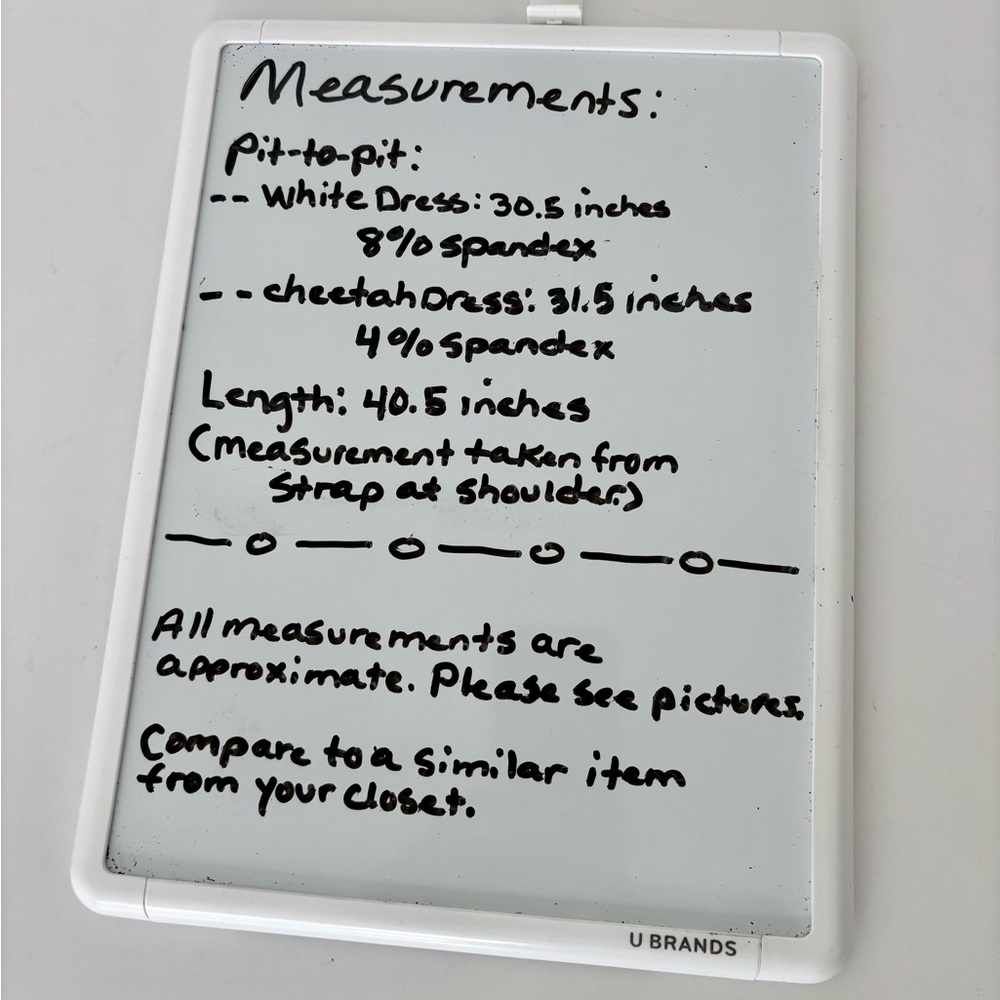 Measurements:
Pit-to-pit:
-- White Dress: 30.5 inches
8% spandex
-- cheetah Dress: 31.5 inches
4% spandex
Length: 40.5 inches
(measurement taken from
strap at shoulder.)
All measurements are
approximate. Please see pictures.
Compare to a similar item
from your closet.
U BRANDS